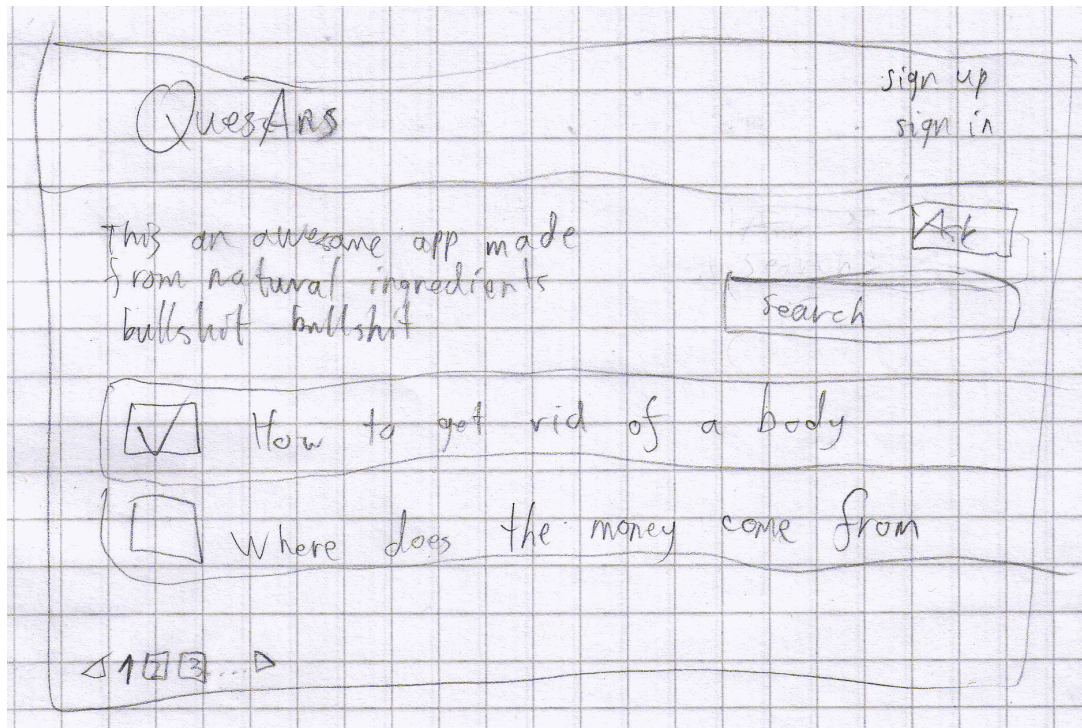 QuesAns
sign up
sign in
This an awesome app made
from natural ingredients
bullshit bullshit
Ask
search
How to get rid of a body
Where does the money come from
1 2 3 ...